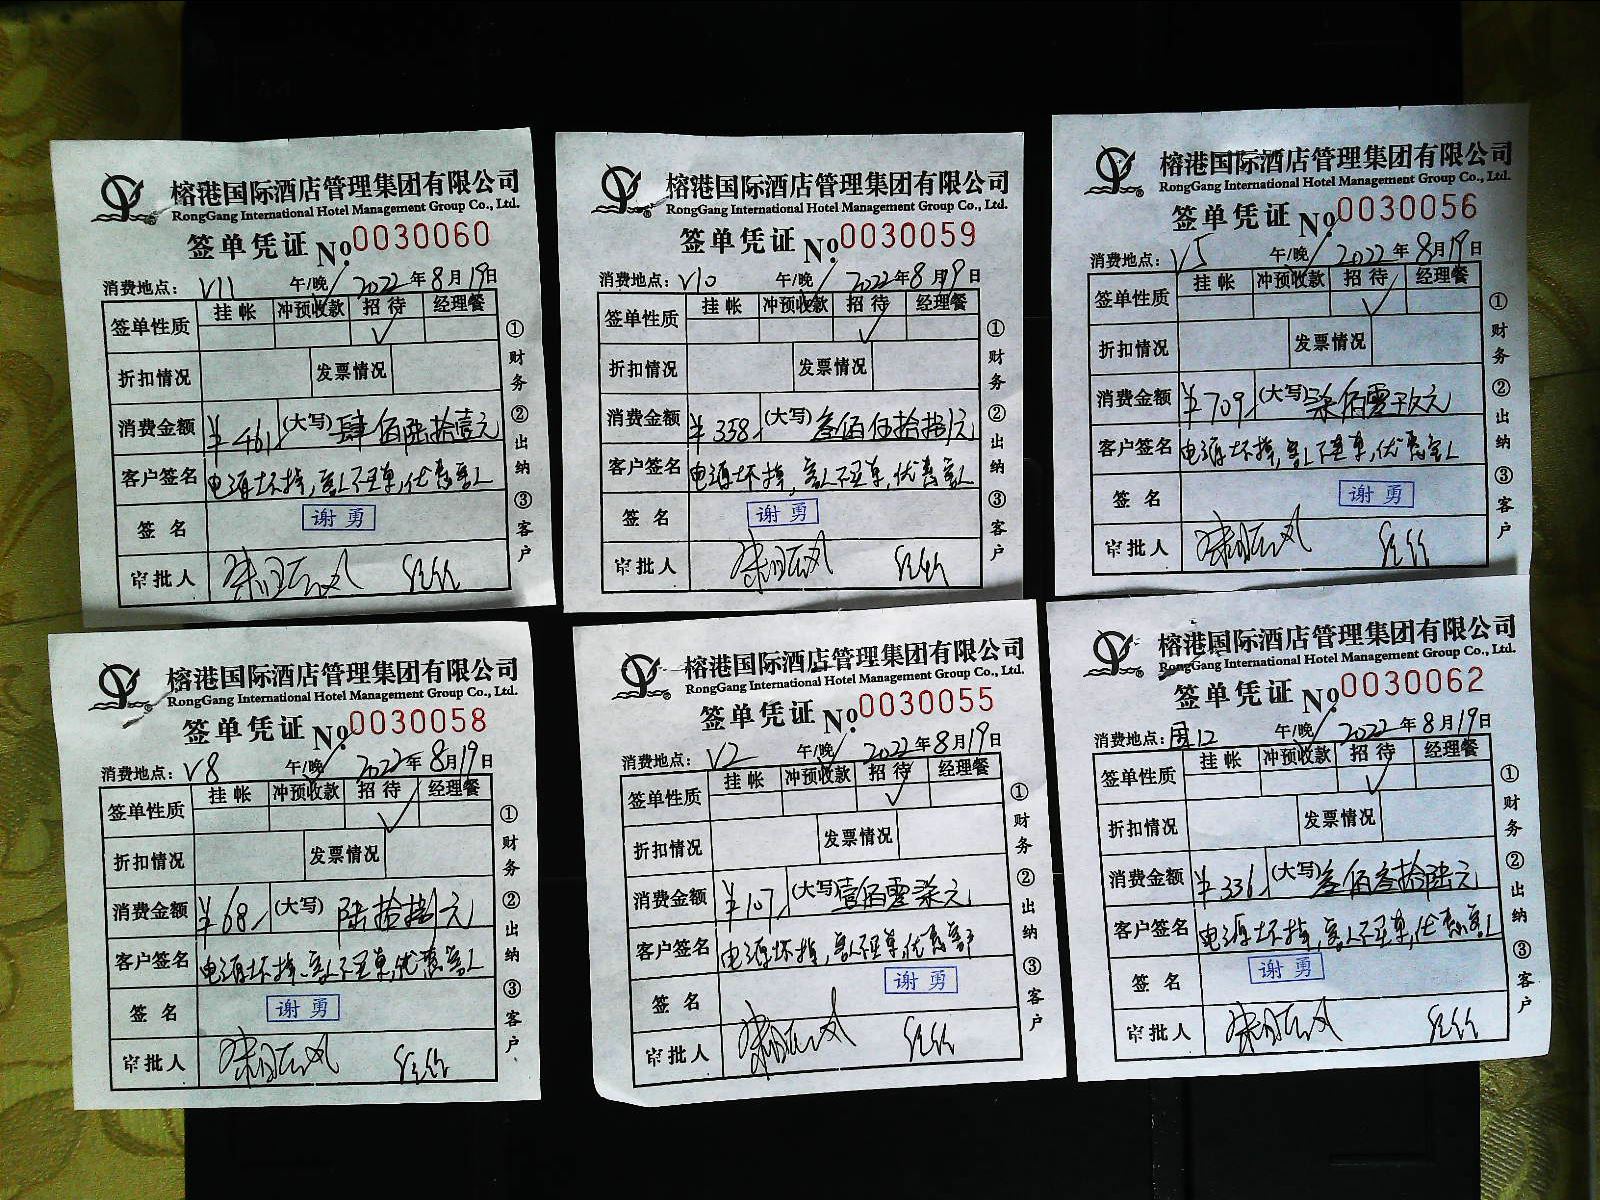 榕港国际酒店管理集团有限公司
RongGang International Hotel Management Group Co., Ltd.
签单凭证 No.0030060
消费地点: V11 午/晚 2022年8月19日
签单性质 挂帐 冲预收款 招待 经理餐
折扣情况 发票情况
消费金额 ¥461 (大写) 肆佰陆拾壹元
客户签名 电源坏掉,客人不买单,优惠客人
签名 谢勇
审批人
①财务 ②出纳 ③客户
榕港国际酒店管理集团有限公司
RongGang International Hotel Management Group Co., Ltd.
签单凭证 No.0030059
消费地点: V10 午/晚 2022年8月19日
签单性质 挂帐 冲预收款 招待 经理餐
折扣情况 发票情况
消费金额 ¥358 (大写) 叁佰伍拾捌元
客户签名 电源坏掉,客人不买单,优惠客人
签名 谢勇
审批人
①财务 ②出纳 ③客户
榕港国际酒店管理集团有限公司
RongGang International Hotel Management Group Co., Ltd.
签单凭证 No.0030056
消费地点: V5 午/晚 2022年8月19日
签单性质 挂帐 冲预收款 招待 经理餐
折扣情况 发票情况
消费金额 ¥709 (大写) 柒佰零玖元
客户签名 电源坏掉,客人不买单,优惠客人
签名 谢勇
审批人
①财务 ②出纳 ③客户
榕港国际酒店管理集团有限公司
RongGang International Hotel Management Group Co., Ltd.
签单凭证 No.0030058
消费地点: V8 午/晚 2022年8月19日
签单性质 挂帐 冲预收款 招待 经理餐
折扣情况 发票情况
消费金额 ¥68 (大写) 陆拾捌元
客户签名 电源坏掉,客人不买单,优惠客人
签名 谢勇
审批人
①财务 ②出纳 ③客户
榕港国际酒店管理集团有限公司
RongGang International Hotel Management Group Co., Ltd.
签单凭证 No.0030055
消费地点: V2 午/晚 2022年8月19日
签单性质 挂帐 冲预收款 招待 经理餐
折扣情况 发票情况
消费金额 ¥107 (大写) 壹佰零柒元
客户签名 电源坏掉,客人不买单,优惠客户
签名 谢勇
审批人
①财务 ②出纳 ③客户
榕港国际酒店管理集团有限公司
RongGang International Hotel Management Group Co., Ltd.
签单凭证 No.0030062
消费地点: 周12 午/晚 2022年8月19日
签单性质 挂帐 冲预收款 招待 经理餐
折扣情况 发票情况
消费金额 ¥336 (大写) 叁佰叁拾陆元
客户签名 电源坏掉,客人不买单,优惠客人
签名 谢勇
审批人
①财务 ②出纳 ③客户